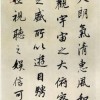 天朗氣清惠風和
觀宇宙之大俯察
之盛所以遊目騁
極視聽之娛信可